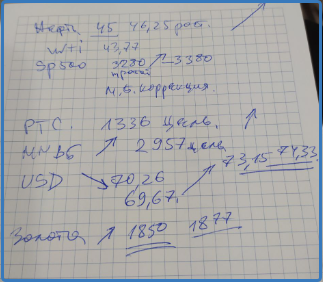 Нефть 45 46,25 раб.
Wti 43,77
Sp500 3280 - 3380
М.б. коррекция.
РТС. 1336 цель.
ММВБ 2957 цель
USD 70,26 73,15 74,33
69,67.
Золото 1850 1877